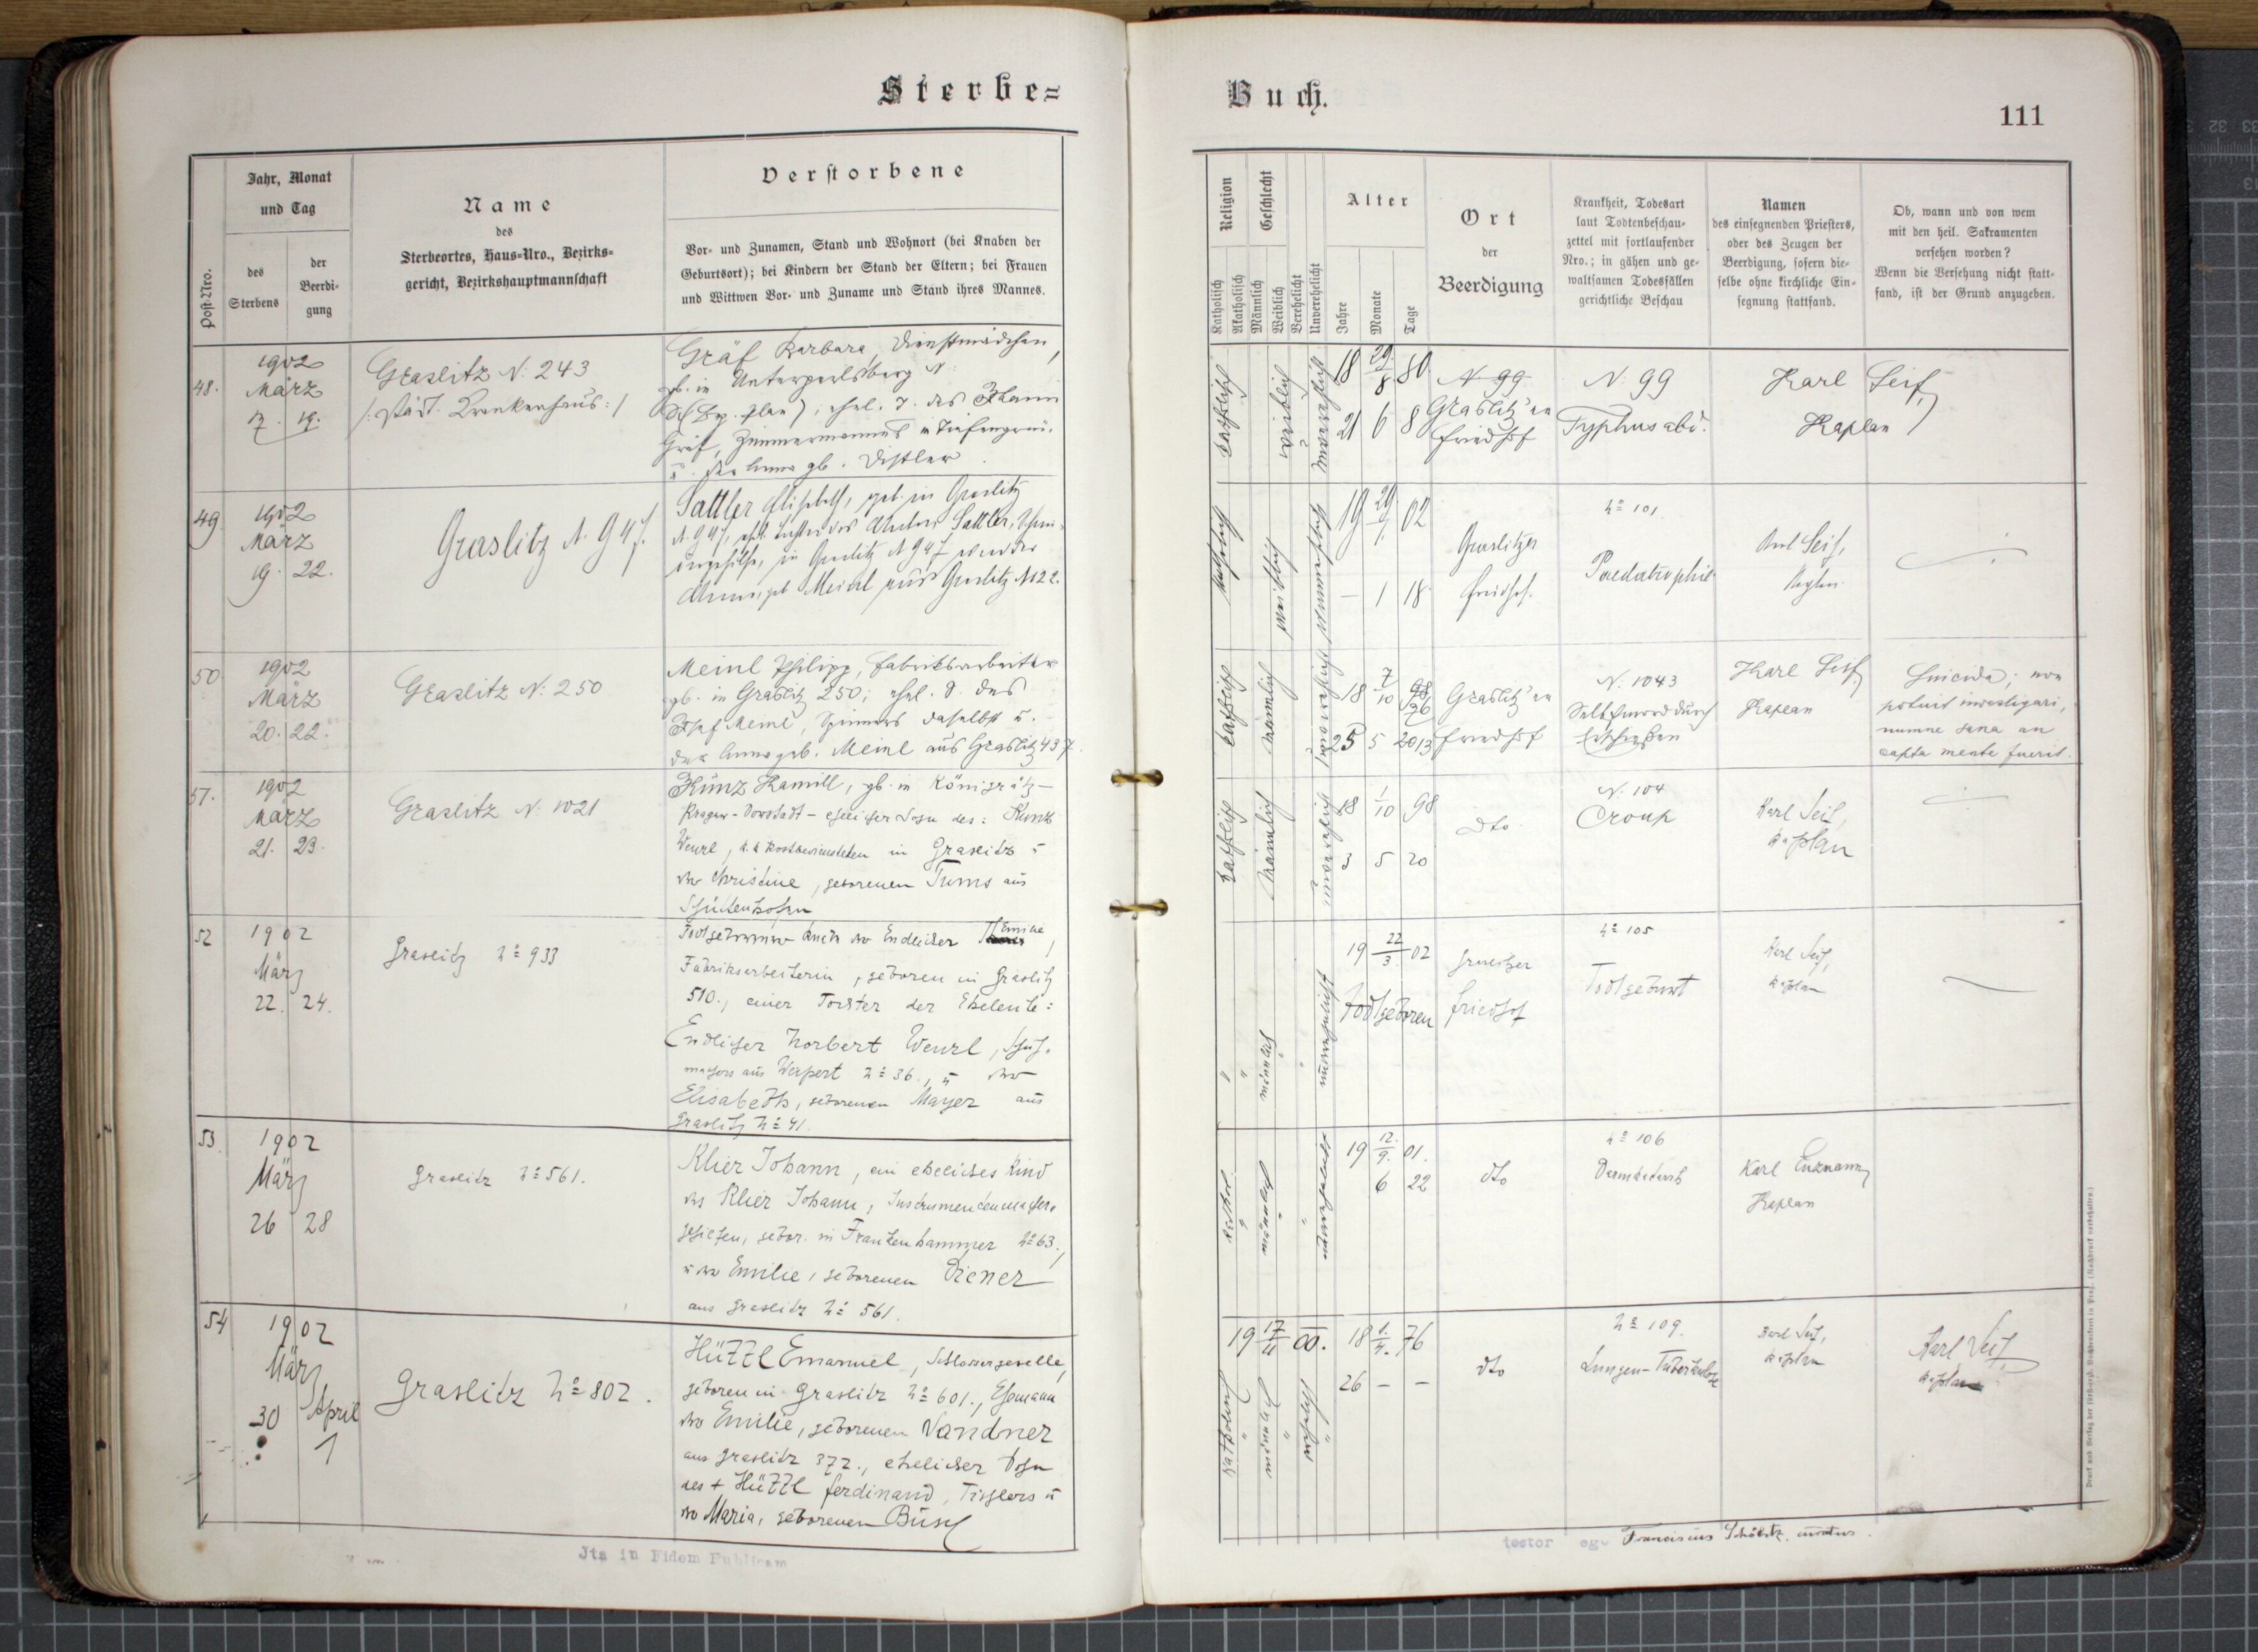 Sterbe=
Jahr, Monat
und Tag
Post-Nro.
des
Sterbens
der
Beerdi-
gung
Name
des
Sterbeortes, Haus-Nro., Bezirks-
gericht, Bezirkshauptmannschaft
Verstorbene
Vor- und Zunamen, Stand und Wohnort (bei Knaben der
Geburtsort); bei Kindern der Stand der Eltern; bei Frauen
und Wittwen Vor- und Zuname und Stand ihres Mannes.
48.
1902
März
17. 19.
Graslitz N. 243
/: städt. Krankenhaus :/
Gräf Barbara, Dienstmädchen,
gb. in
Plan); ehel. T. des
Gräf, Zimmermannes
u. der Anna gb. Distler
49
1902
März
19. 22.
Graslitz N. 947.
Sattler Elisabeth, geb. in Graslitz
N. 947, ehl. Tochter des Anton Sattler,
in Graslitz N 947 und der
Anna, geb. Meinl aus Graslitz N 122.
50
1902
März
20. 22.
Graslitz N. 250
Meinl Philipp, Fabriksarbeiter
gb. in Graslitz 250; ehel. S. des
Josef Meinl, Spinners daselbst u.
der Anna geb. Meinl aus Graslitz 437.
51.
1902
März
21. 23.
Graslitz N. 1021
Kunz Kamill, gb. in Königrätz-
Prager-Vorstadt - ehelicher Sohn des: Kunz
Wenzl, k.k. Postbediensteten in Graslitz u
der Christine, geborenen Tums aus
Schüttenhofen
52
1902
März
22. 24.
Graslitz N° 933
Todtgeburt durch der Endlicher Emilie,
Fabriksarbeiterin, geboren in Graslitz
510., einer Tochter der Eheleute:
Endlicher Norbert Wenzl, Schuh-
machers aus Weipert N° 36., u der
Elisabeth, geborenen Mayer aus
Graslitz N° 41.
53.
1902
März
26 28
Graslitz N° 561.
Klier Johann, ein eheliches Kind
des Klier Johann, Instrumentenmacher-
gehilfen, gebor. in Frankenhammer N° 63.,
u der Emilie, geborenen Diener
aus Graslitz N° 561.
54
1902
März,
30 April
1
Graslitz N° 802.
Hüttl Emanuel, Schlossergeselle,
geboren in Graslitz N° 601., Ehemann
der Emilie, geborenen Sandner
aus Graslitz 372., ehelicher Sohn
des + Hüttl Ferdinand, Tischlers u
der Maria, geborenen
Ita in Fidem Publicam
Buch.
111
Religion
Katholisch
Akatholisch
Geschlecht
Männlich
Weiblich
Verehelicht
Unverehelicht
Alter
Jahre
Monate
Tage
Ort
der
Beerdigung
Krankheit, Todesart
laut Todtenbeschau-
zettel mit fortlaufender
Nro.; in gähen und ge-
waltsamen Todesfällen
gerichtliche Beschau
Namen
des einsegnenden Priesters,
oder des Zeugen der
Beerdigung, sofern die-
selbe ohne kirchliche Ein-
segnung stattfand.
Ob, wann und von wem
mit den heil. Sakramenten
versehen worden?
Wenn die Versehung nicht statt-
fand, ist der Grund anzugeben.
katholisch
weiblich
unverehelicht
18 29/8 80
21 6 8
N 99
Graslitz'er
Friedhof
N 99
Typhus abd.
Karl Seif,
Kaplan
katholisch
weiblich
unverehelicht
19 29/1 02
— 1 18
Graslitzer
Friedhof.
N° 101
Paedatrophie
Karl Seif,
Kaplan
katholisch
männlich
unverehelicht
18 7/10 76
25 5 13
Graslitz'er
Friedhof
N. 1043
Selbstmord durch
Erschießen
Karl Seif
Kaplan
Suicida; non
potuit investigari,
numne sana an
capta mente fuerit.
katholisch
männlich
unverehelicht
18 1/10 98
3 5 20
dto
N. 104
Croup
Karl Seif,
Kaplan
"
männlich
unverehelicht
19 22/3. 02
Todtgeboren
Graslitzer
Friedhof
N° 105
Todtgeburt
Karl Seif,
Kaplan
kathol.
männlich
unverehelicht
19 12./9. 01.
6 22
dto
N° 106
Darmkatarrh
Karl Enzmann,
Kaplan
19 17/11 00.
katholisch
männlich
verehelicht
18 1./4. 76
26 — —
dto
N° 109.
Lungen-Tuberkulose
Karl Seif,
Kaplan
Karl Seif
Kaplan
testor ego Franciscus
Druck und Verlag der fürst-erzb. Buchdruckerei in Prag. (Nachdruck vorbehalten.)